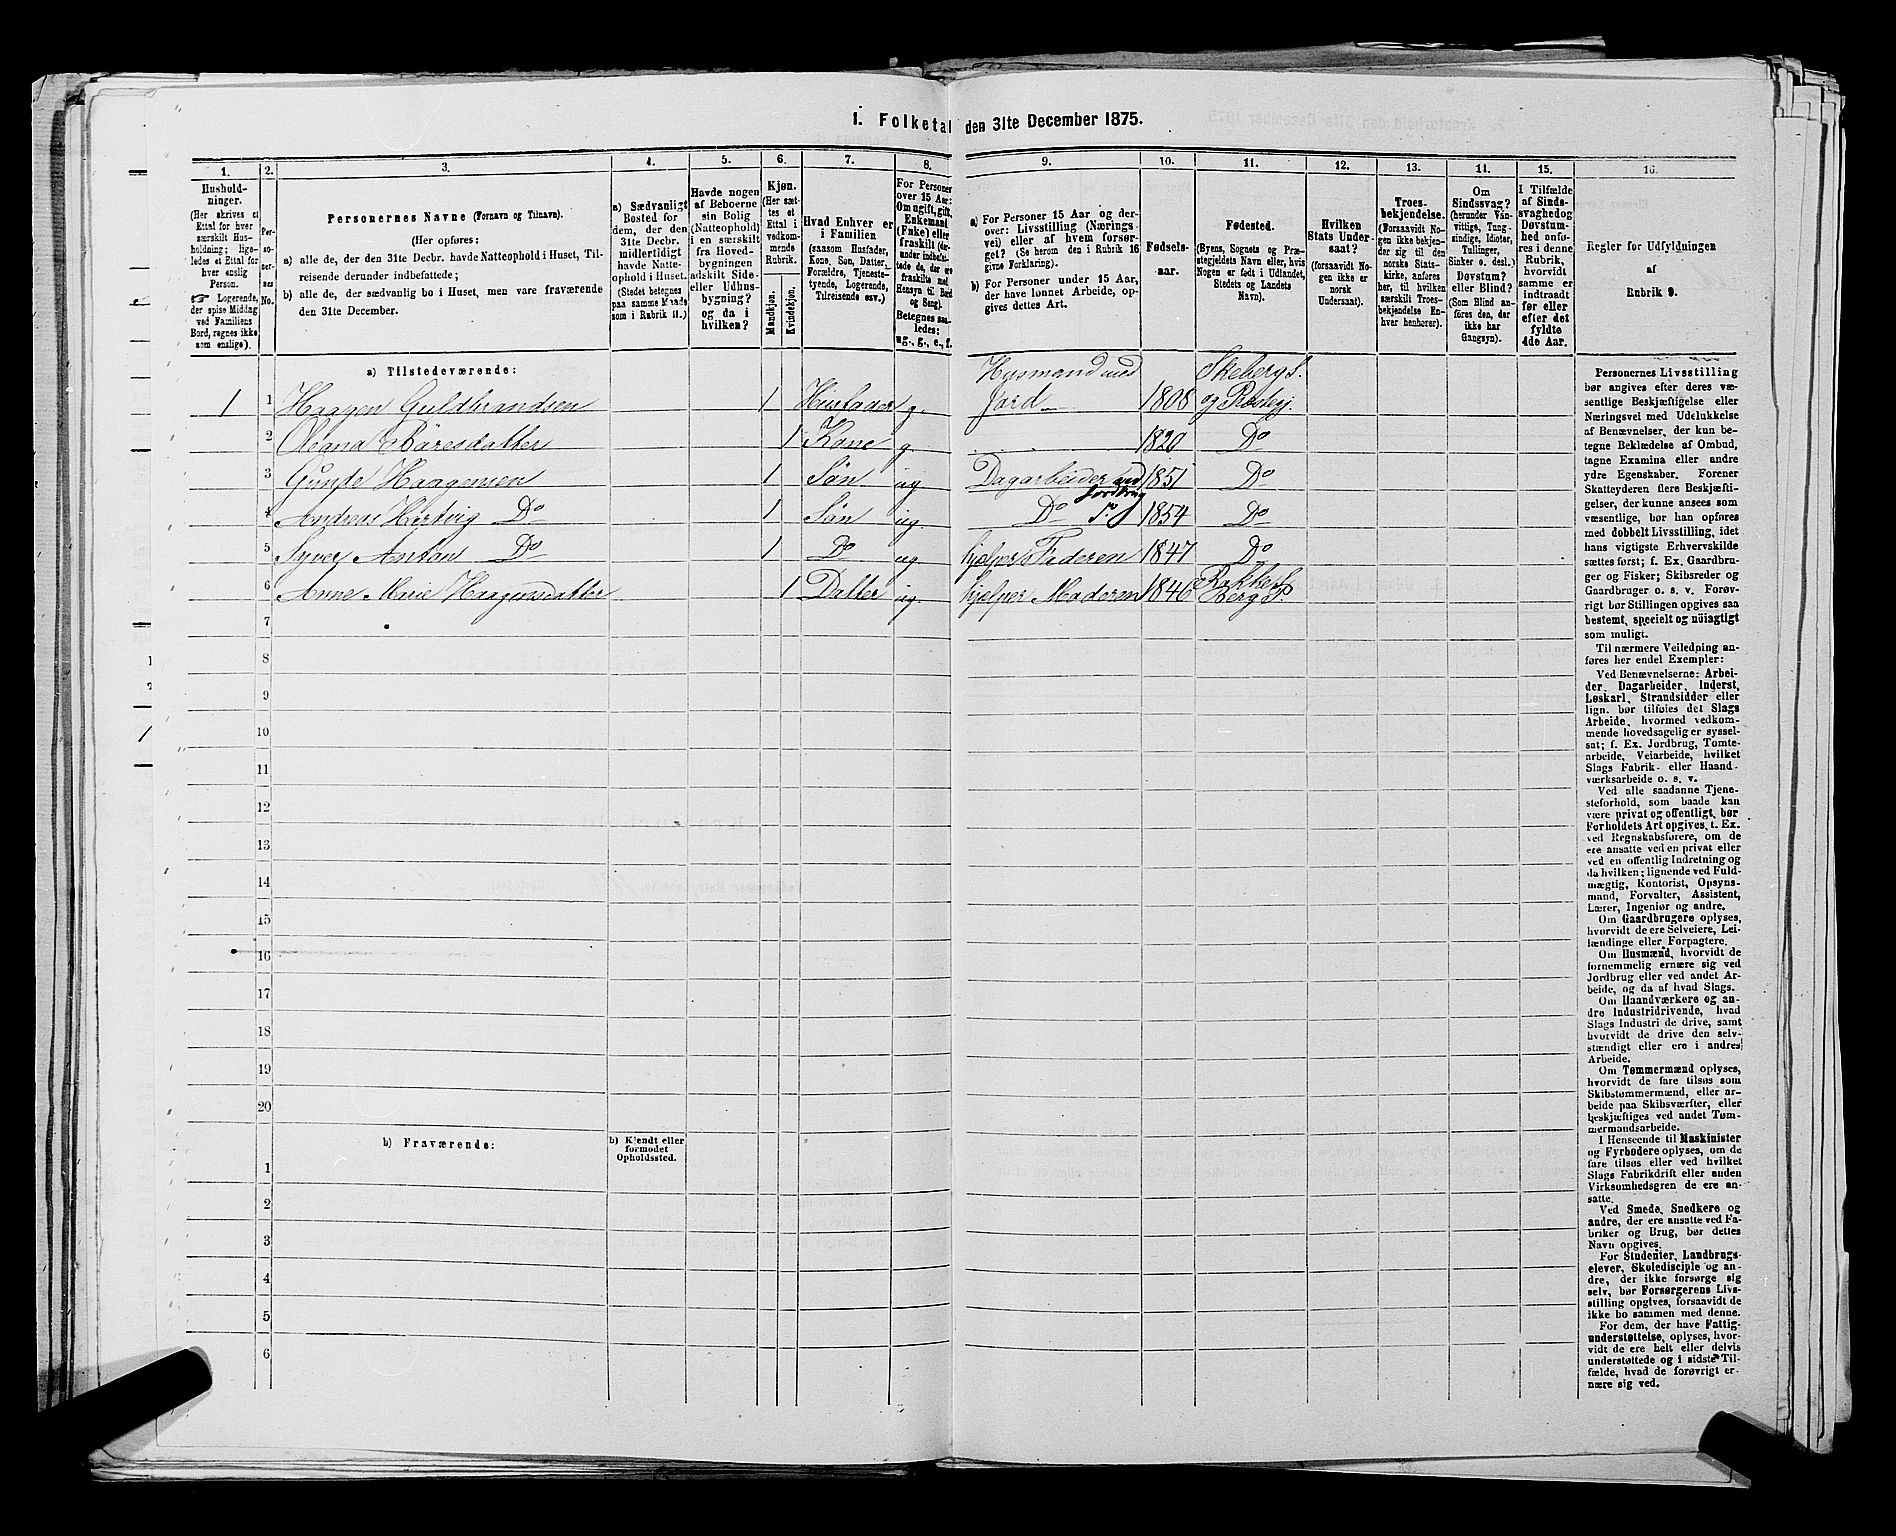 1. Folketal den 31te December 1875.
1.
Hushold-
ninger.
(Her skrives et
Ettal for hver
særskilt Hus-
holdning; lige-
ledes et Ettal for
hver enslig
Person.
☞ Logerende,
der spise Middag
ved Familiens
Bord, regnes ikke
som enslige).
2.
Per-
so-
ner-
nes
No.
3.
Personernes Navne (Fornavn og Tilnavn).
(Her opføres:
a) alle de, der den 31te Decbr. havde Natteophold i Huset, Til-
reisende derunder indbefattede;
b) alle de, der sædvanlig bo i Huset, men vare fraværende
den 31te December.
4.
a) Sædvanligt
Bosted for
dem, der den
31te Decbr.
midlertidigt
havde Natte-
ophold i Huset.
(Stedet betegnes
paa samme Maade
som i Rubrik 11.)
5.
Havde nogen
af Beboerne
sin Bolig
(Natteophold)
i en særskilt
fra Hoved-
bygningen
adskilt Side-
eller Udhus-
bygning?
og da i
hvilken?
6.
Kjøn.
(Her sæt-
tes et
Ettal i
vedkom-
mende
Rubrik.
Mandkjøn.
Kvindekjøn.
7.
Hvad Enhver er
i Familien
(saasom Husfader,
Kone, Søn, Datter,
Forældre, Tjeneste-
tyende, Logerende,
Tilreisende osv.)
8.
For Personer
over 15 Aar:
Om ugift, gift,
Enkemand
(Enke) eller
fraskilt (der-
under indbefat-
tede de, der ere
fraskilte med
Hensyn til Bord
og Seng).
Betegnes saa-
ledes:
ug., g., e., f.
9.
a) For Personer 15 Aar og der-
over: Livsstilling (Nærings-
vei) eller af hvem forsør-
get? (Se herom den i Rubrik 16
givne Forklaring).
b) For Personer under 15 Aar,
der have lønnet Arbeide, op-
gives dettes Art.
10.
Fødsels-
aar.
11.
Fødested.
(Byens, Sognets og Præ-
stegjeldets Navn eller, hvis
Nogen er født i Udlandet,
Stedets og Landets
Navn).
12.
Hvilken
Stats Under-
saat?
(forsaavidt No-
gen ikke er
norsk
Undersaat).
13.
Troes-
bekjendelse.
(Forsaavidt No-
gen ikke bekjen-
der sig til den
norske Stats-
kirke, anføres
her, til hvilken
særskilt Troes-
bekjendelse En-
hver henhører).
14.
Om
Sindssvag?
(herunder Van-
vittige, Tung-
sindige, Idioter,
Tullinger,
Sinker o. desl.)
Døvstum?
eller Blind?
(Som Blind an-
føres den, der
ikke har
Gangsyn).
15.
I Tilfælde
af Sinds-
svaghed og
Døvstum-
hed anfø-
res i denne
Rubrik,
hvorvidt
samme er
indtraadt
før eller
efter det
fyldte
4de Aar.
16.
Regler for Udfyldningen
af
Rubrik 9.
a) Tilstedeværende:
Husmand med Skeberg S.
1 1 Haagen Guldbrandsen 1 Husfader g. Jord 1808 og Præstegj.
2 Oleana Baaresdatter 1 Kone g. 1820 Do
3 Gunde Haagensen 1 Søn ug Dagarbeider ved Jordbrug 1851 Do
4 Andreas Hartvig Do 1 Søn ug Do 1854 Do
5 Syver Anton Do 1 Do ug. hjelper Faderen 1847 Do
6 Anne Marie Haagensdatter 1 Datter ug. hjelper Moderen 1846 Bakke S. Berg P.
7
8
9
10
11
12
13
14
15
16
17
18
19
20
b) Fraværende:
b) Kjendt eller
formodet
Opholdssted.
1
2
3
4
5
6
Personernes Livsstilling
bør angives efter deres væ-
sentlige Beskjæftigelse eller
Næringsvei med Udelukkelse
af Benævnelser, der kun be-
tegne Beklædelse af Ombud,
tagne Examina eller andre
ydre Egenskaber. Forener
Skatteyderen flere Beskjæfti-
gelser, der kunne ansees som
væsentlige, bør han opføres
med dobbelt Livsstilling, idet
hans vigtigste Erhvervskilde
sættes først; f. Ex. Gaardbru-
ger og Fisker; Skibsreder og
Gaardbruger o. s. v. Forøv-
rigt bør Stillingen opgives saa
bestemt, specielt og nøiagtigt
som muligt.
Til nærmere Veiledning an-
føres her endel Exempler:
Ved Benævnelserne: Arbei-
der, Dagarbeider, Inderst,
Løskarl, Strandsidder eller
lign. bør tilføies det Slags
Arbeide, hvormed vedkom-
mende hovedsagelig er syssel-
sat; f. Ex. Jordbrug, Tomte-
arbeide, Veiarbeide, hvilket
Slags Fabrik- eller Haand-
værksarbeide o. s. v.
Ved alle saadanne Tjene-
steforhold, som baade kan
være privat og offentligt, bør
Forholdets Art opgives, t. Ex.
ved Regnskabsførere, om de
ere ansatte ved en privat eller
ved en offentlig Indretning og
da hvilken; lignende ved Fuld-
mægtig, Kontorist, Opsyns-
mand, Forvalter, Assistent,
Lærer, Ingeniør og andre.
Om Gaardbrugere oplyses,
hvorvidt de ere Selveiere, Lei-
lændinge eller Forpagtere.
Om Husmænd, hvorvidt de
fornemmelig ernære sig ved
Jordbrug eller ved andet Ar-
beide, og da af hvad Slags.
Om Haandværkere og an-
dre Industridrivende, hvad
Slags Industri de drive, samt
hvorvidt de drive den selv-
stændigt eller ere i andres
Arbeide.
Om Tømmermænd oplyses,
hvorvidt de fare tilsøs som
Skibstømmermænd, eller ar-
beide paa Skibsværfter, eller
beskjæftiges ved andet Tøm-
mermandsarbeide.
I Henseende til Maskinister
og Fyrbødere oplyses, om de
fare tilsøs eller ved hvilket
Slags Fabrikdrift eller anden
Virksomhedsgren de ere an-
satte.
Ved Smede, Snedkere og
andre, der ere ansatte ved Fa-
briker og Brug, bør dettes
Navn opgives.
For Studenter, Landbrugs-
elever, Skoledisciple og an-
dre, der ikke forsørge sig
selv, bør Forsørgerens Livs-
stilling opgives, forsaavidt de
ikke bo sammen med denne.
For dem, der have Fattig-
understøttelse, oplyses, hvor-
vidt de ere helt eller delvis
understøttede og i sidste Til-
fælde, hvad de forøvrigt er-
nære sig ved.